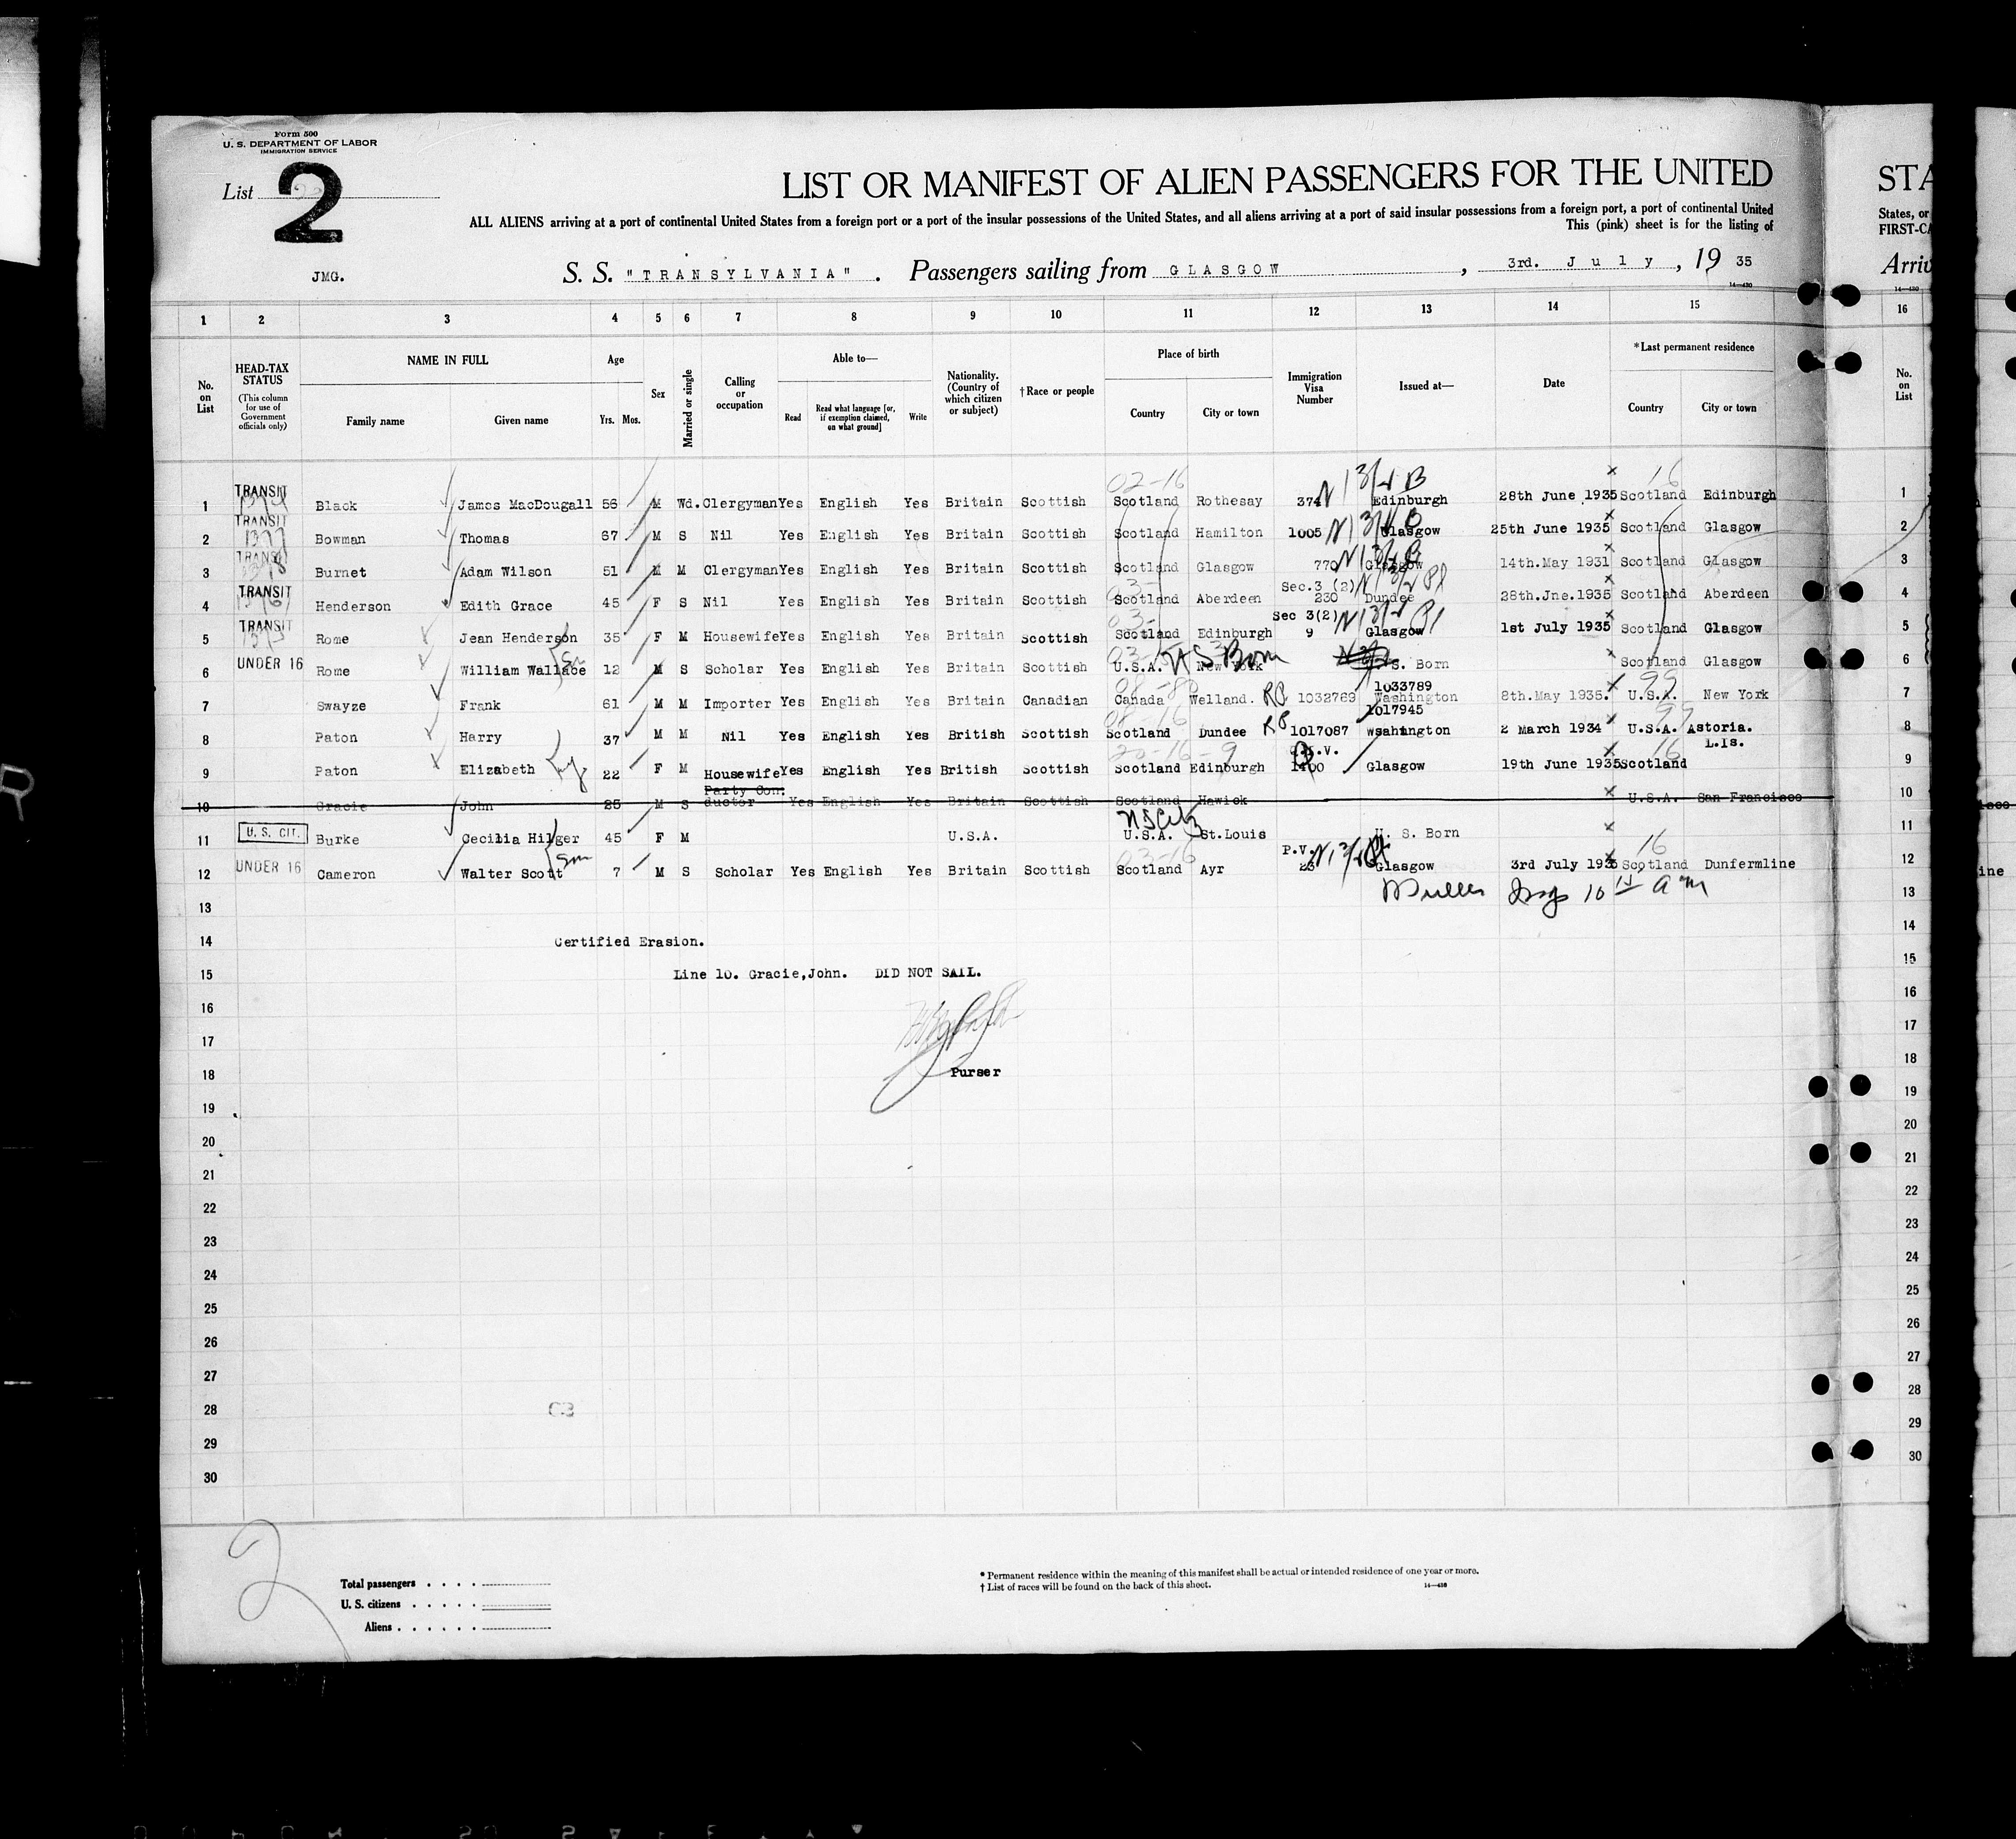 Form 500
U. S. DEPARTMENT OF LABOR
IMMIGRATION SERVICE
List 2
LIST OR MANIFEST OF ALIEN PASSENGERS FOR THE UNITED
STA
ALL ALIENS arriving at a port of continental United States from a foreign port or a port of the insular possessions of the United States, and all aliens arriving at a port of said insular possessions from a foreign port, a port of continental United
States, or
This (pink) sheet is for the listing of
FIRST-CA
JMG.
S. S. "TRANSYLVANIA" . Passengers sailing from GLASGOW , 3rd. July , 19 35
Arriv
14—430
1 2 3 4 5 6 7 8 9 10 11 12 13 14 15 16
No. on List
HEAD-TAX STATUS (This column for use of Government officials only)
NAME IN FULL
Family name Given name
Age
Yrs. Mos.
Sex
Married or single
Calling or occupation
Able to—
Read Read what language [or, if exemption claimed, on what ground] Write
Nationality. (Country of which citizen or subject)
†Race or people
Place of birth
Country City or town
Immigration Visa Number
Issued at—
Date
*Last permanent residence
Country City or town
No. on List
02-16 16
1 TRANSIT Black James MacDougall 56 M Wd. Clergyman Yes English Yes Britain Scottish Scotland Rothesay 374 Edinburgh 28th June 1935 Scotland Edinburgh 1
2 TRANSIT Bowman Thomas 67 M S Nil Yes English Yes Britain Scottish Scotland Hamilton 1005 Glasgow 25th June 1935 Scotland Glasgow 2
3 TRANSIT Burnet Adam Wilson 51 M M Clergyman Yes English Yes Britain Scottish Scotland Glasgow 770 Glasgow 14th.May 1931 Scotland Glasgow 3
Sec.3 (2)
4 TRANSIT Henderson Edith Grace 45 F S Nil Yes English Yes Britain Scottish Scotland Aberdeen 230 Dundee 28th.Jne.1935 Scotland Aberdeen 4
Sec 3(2)
5 TRANSIT Rome Jean Henderson 35 F M Housewife Yes English Yes Britain Scottish Scotland Edinburgh 9 Glasgow 1st July 1935 Scotland Glasgow 5
6 UNDER 16 Rome William Wallace 12 M S Scholar Yes English Yes Britain Scottish U.S.A. U S Born New York U. S. Born Scotland Glasgow 6
1033789 99
7 Swayze Frank 61 M M Importer Yes English Yes Britain Canadian Canada Welland. 1032769 Washington 8th.May 1935. U.S.A. New York 7
1017945 99
8 Paton Harry 37 M M Nil Yes English Yes British Scottish Scotland Dundee 1017087 Wsahington 2 March 1934 U.S.A. Astoria. 8
L.Is.
20-16-9 16
9 Paton Elizabeth 22 F M Housewife Yes English Yes British Scottish Scotland Edinburgh 1400 Glasgow 19th June 1935 Scotland 9
Party Con:
10 Gracie John 25 M S ductor Yes English Yes Britain Scottish Scotland Hawick U.S.A. San Francisco 10
11 U. S. CIT. Burke Cecilia Hilger 45 F M U.S.A. U.S.A. St.Louis U. S. Born 11
03-16 P.V. 16
12 UNDER 16 Cameron Walter Scott 7 M S Scholar Yes English Yes Britain Scottish Scotland Ayr 23 Glasgow 3rd July 1935 Scotland Dunfermline 12
13 13
14 Certified Erasion. 14
15 Line 10. Gracie,John. DID NOT SAIL. 15
16 16
17 17
18 Purser 18
19 19
20 20
21 21
22 22
23 23
24 24
25 25
26 26
27 27
28 28
29 29
30 30
2
Total passengers
U. S. citizens
Aliens
* Permanent residence within the meaning of this manifest shall be actual or intended residence of one year or more.
† List of races will be found on the back of this sheet.
14—430